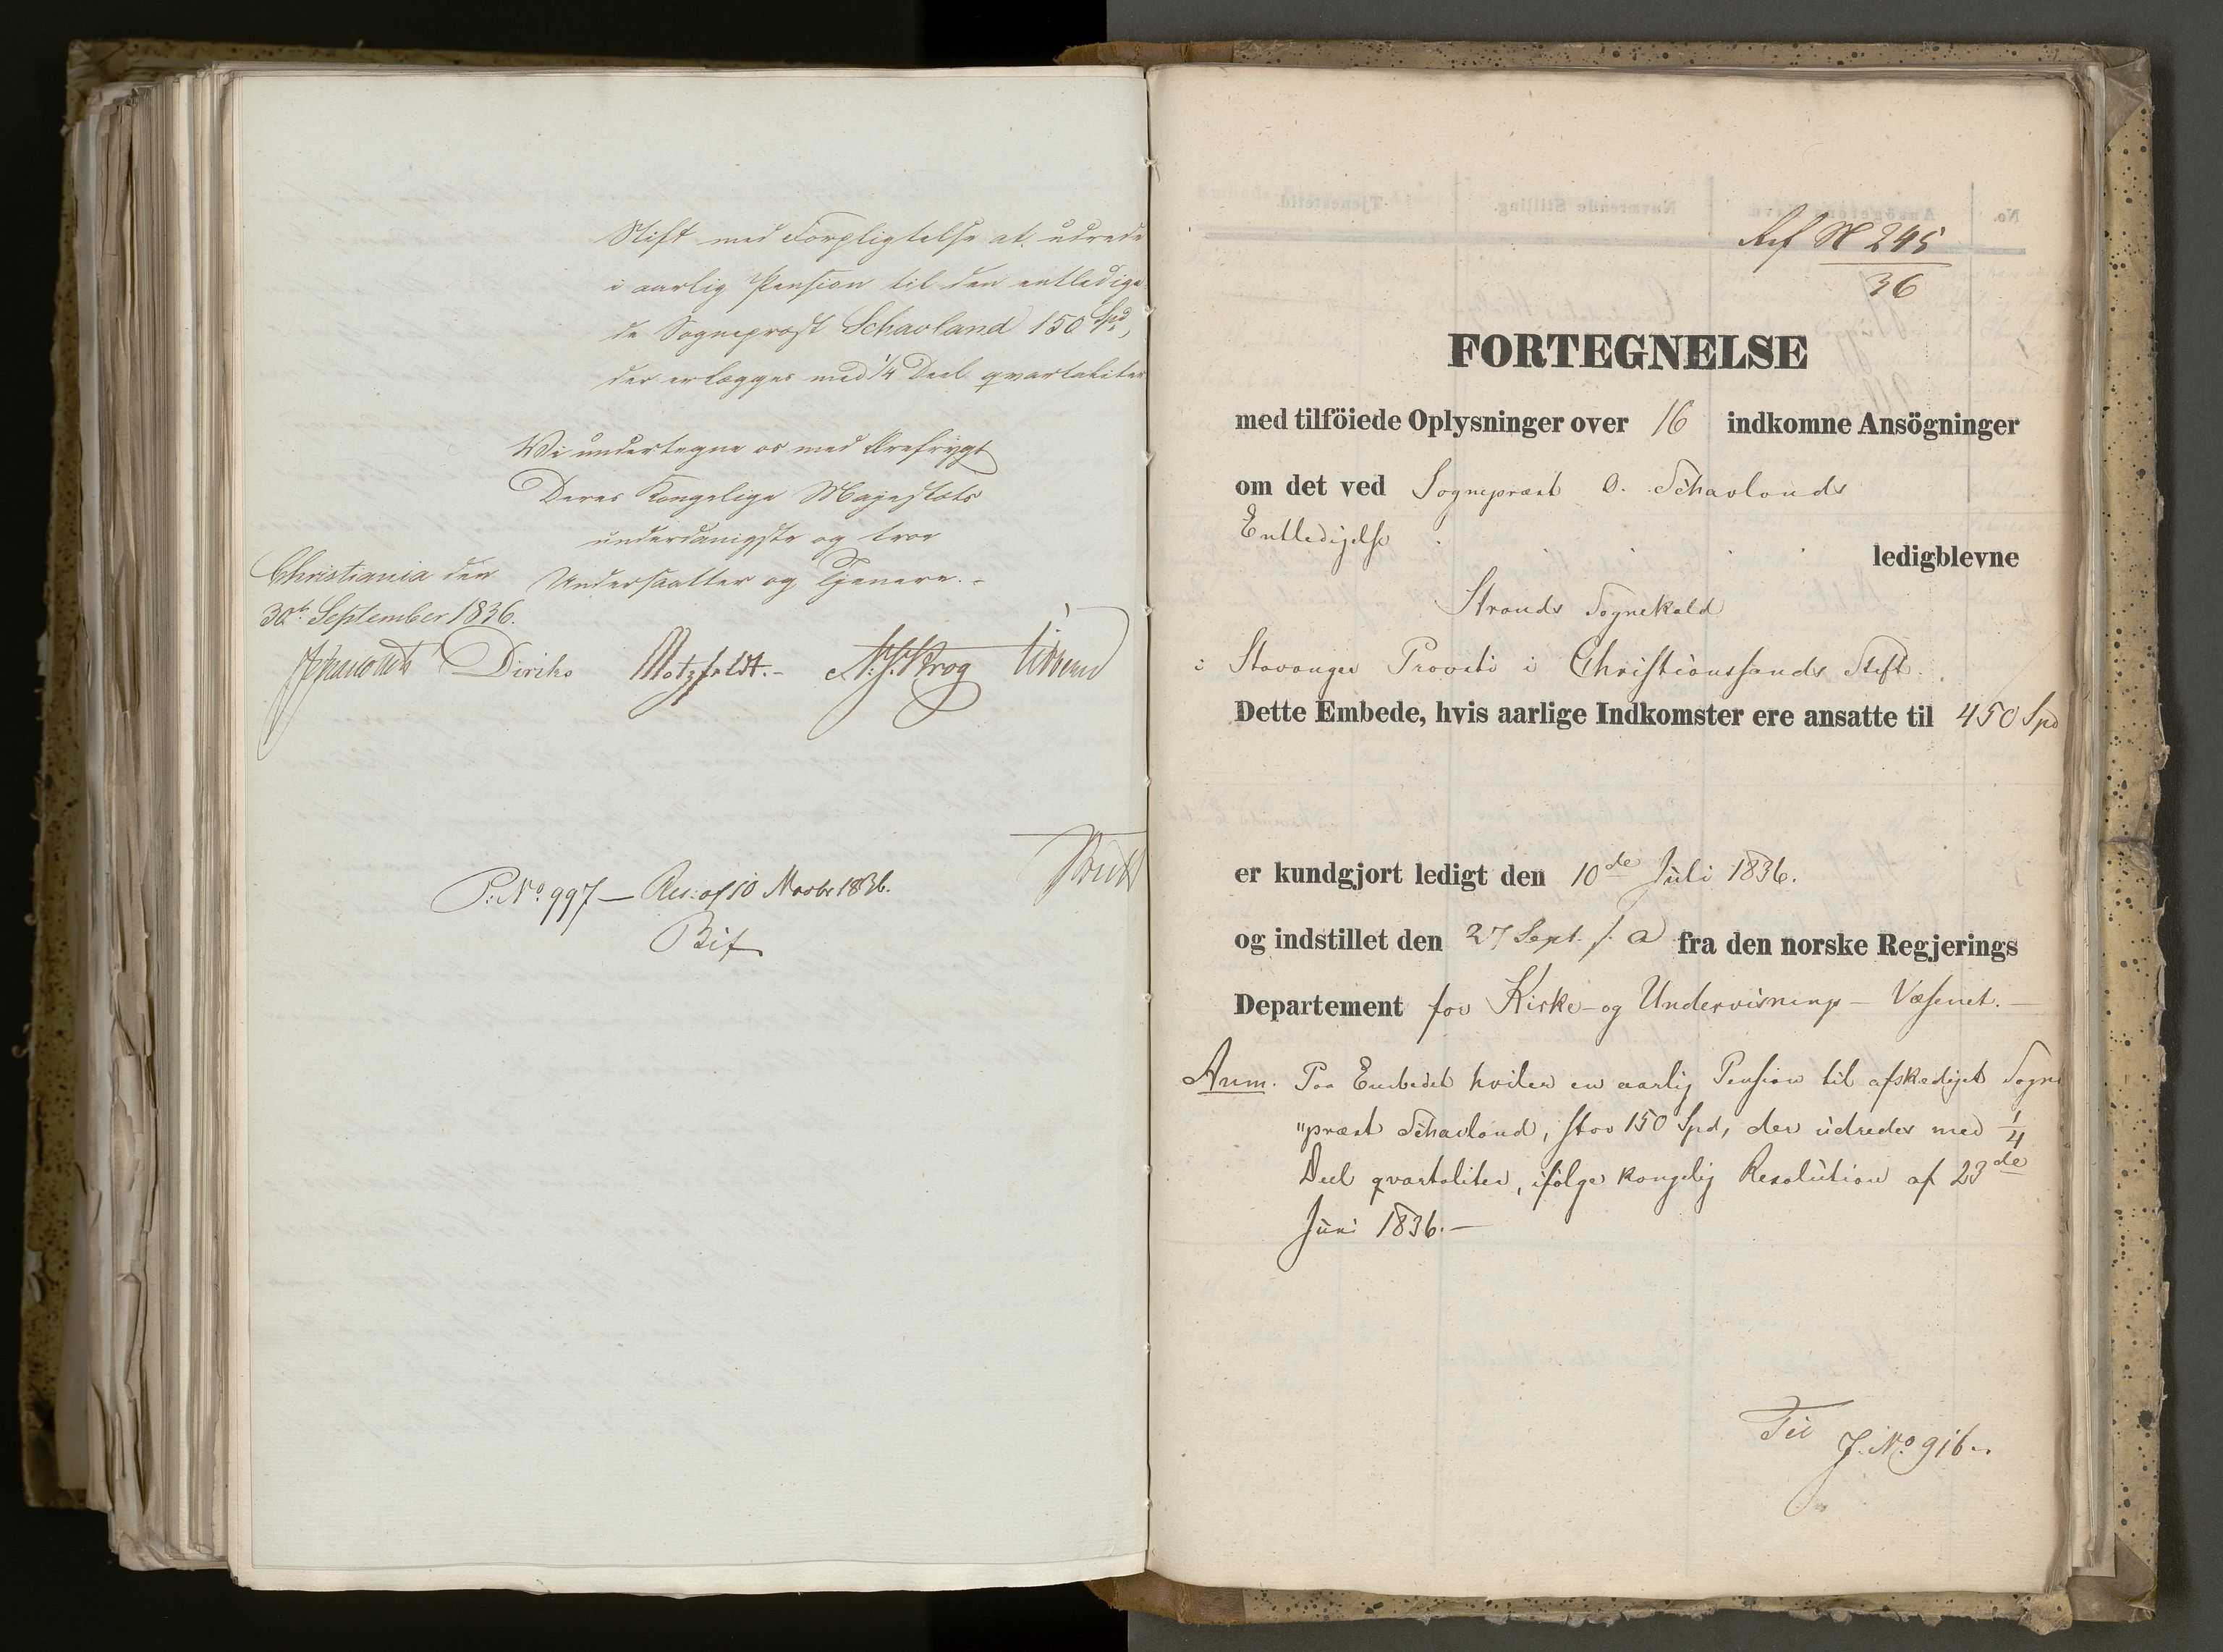 Stift med Forpligtelse at udrede
i aarlig Pension til den entledige
de Sognepræst Schavland 150 Spd,
der erlægges med 1/4 Deel qvartaliter
Vi undertegne os med Ærefrygt
Deres Kongelige Majestæts
underdanigste og troe
Undersaatter og Tjenere. -
Christiania den
30te September 1836.
Diriks Motzfeldt. - N. J. Krog
P: No 997 — Res: af 10 Novbr 1836.
Ref No 245
36
FORTEGNELSE
med tilföiede Oplysninger over 16 indkomne Ansögninger
om det ved Sognepræst O. Schavlands
Entledigelse
ledigblevne
Strands Sognekald
i Stavanger Provsti i Christianssands Stift.
Dette Embede, hvis aarlige Indkomster ere ansatte til 450 Spd
er kundgjort ledigt den 10de Juli 1836.
og indstillet den 27 Sept. s. A fra den norske Regjerings
Departement for Kirke- og Undervisnings - Væsenet. —
Anm. Paa Embedet hviler en aarlig Pension til afskediget Sogne
"præst Schavland, stor 150 Spd, der udredes med 1/4
Deel qvartaliter, ifölge kongelig Resolution af 23de
Juni 1836. —
Til
J. No 916.